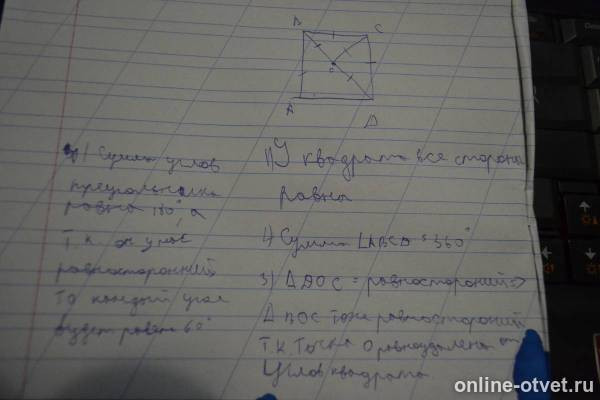 B
C
O
A
D
Сумма углов
треугольника
равна 180°, а
т.к он
равносторонний
то каждый угол
будет равен 60°
1) У квадрата все стороны
равны
2) Сумма ∟ABCD = 360°
3) Δ DOC = равносторонний =>
Δ BOC тоже равносторонний
т.к. точка O равноудалена от
углов квадрата
online-otvet.ru